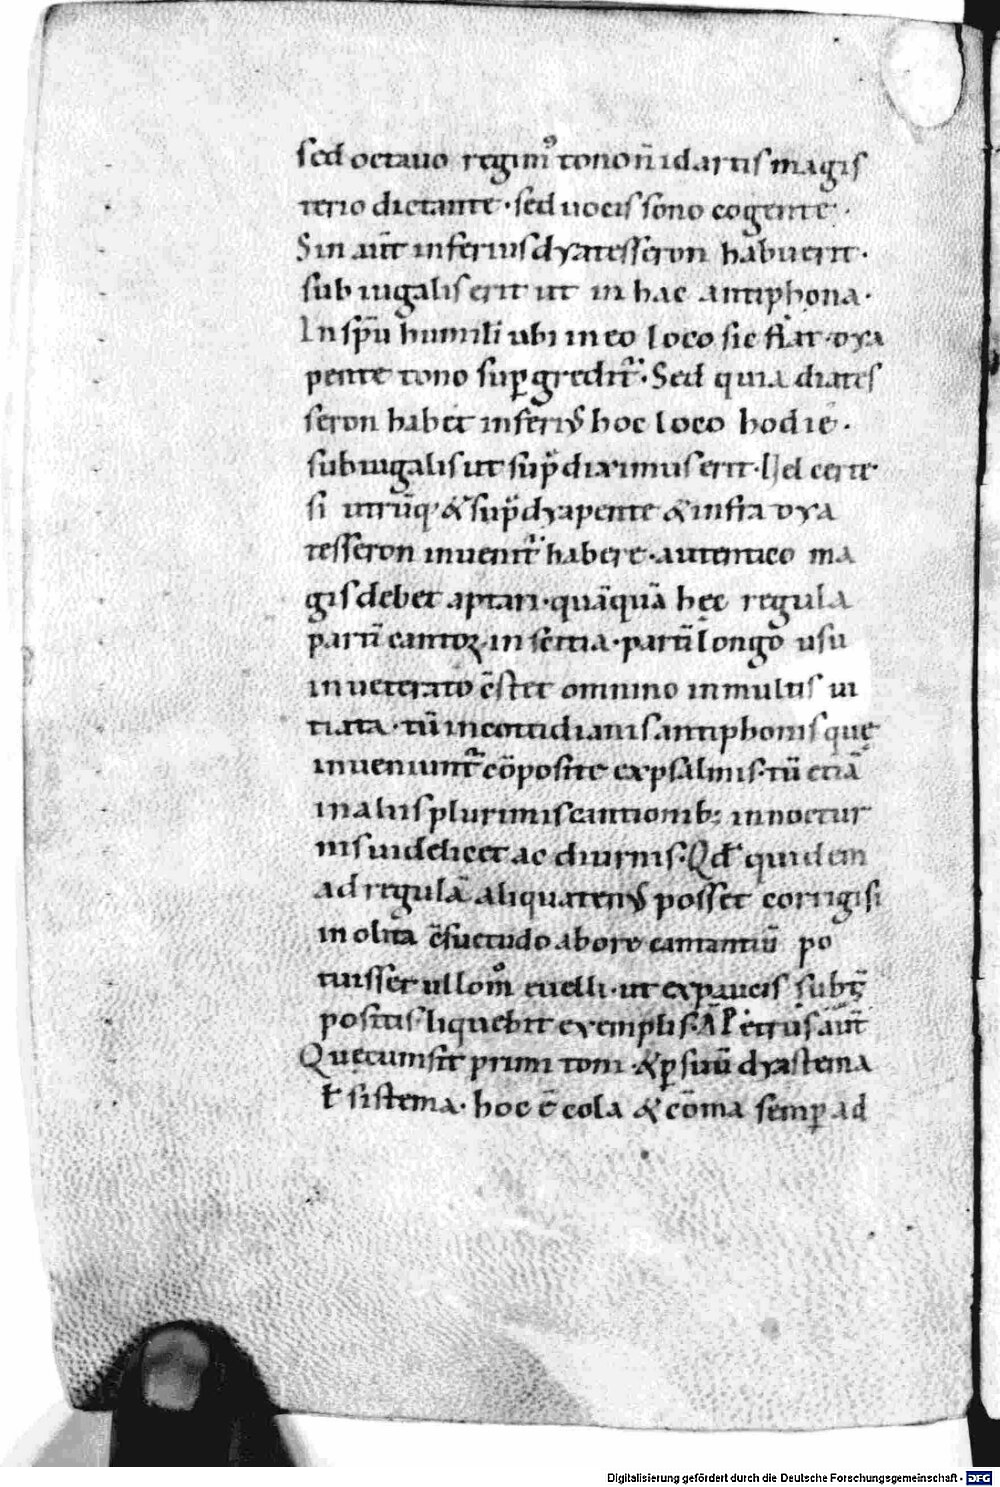 sed octauo regim᷒ tono n̄ id artis magis
terio dictante · sed uocis sono cogente ·
Sin aut̄ inferius dyatesseron habuerit ·
sub iugalis erit ut in hac antiphona ·
In sp̄u humili ubi in eo loco sic fiat dya
pente tono suꝑgredit᷑ · Sed quia diates
seron habet inferi᷒ hoc loco hodie ·
subiugalis ut sup̄ diximus erit · Uel certe
si utrūq; & sup̄ dyapente & infra dya
tesseron inuenit᷑ habere · autentico ma
gis debet aptari · quāquā hęc regula
partī cantoꝝ inscitia · partī longo usu
inueterato c̄stet omnino in multis ui
tiata · tū in cottidianis antiphonis quę
inueniunt᷑ cōposite ex psalmis · tū etiā
in aliis plurimis cantionib; in noctur
nis uidelicet ac diurnis · Qd̄ quidem
ad regulā aliquaten᷒ posset corrigi si
inolita c̄suetudo ab ore cantantiū po
tuisset ullom̊ euelli · ut ex paucis subt᷑
positis liquebit exemplis · A P etrus aut̄
Quę cum sit primi toni · & ꝑ suū dyastema
ł sistema · hoc ē cola & cōma semꝑ ad
Digitalisierung gefördert durch die Deutsche Forschungsgemeinschaft - DFG